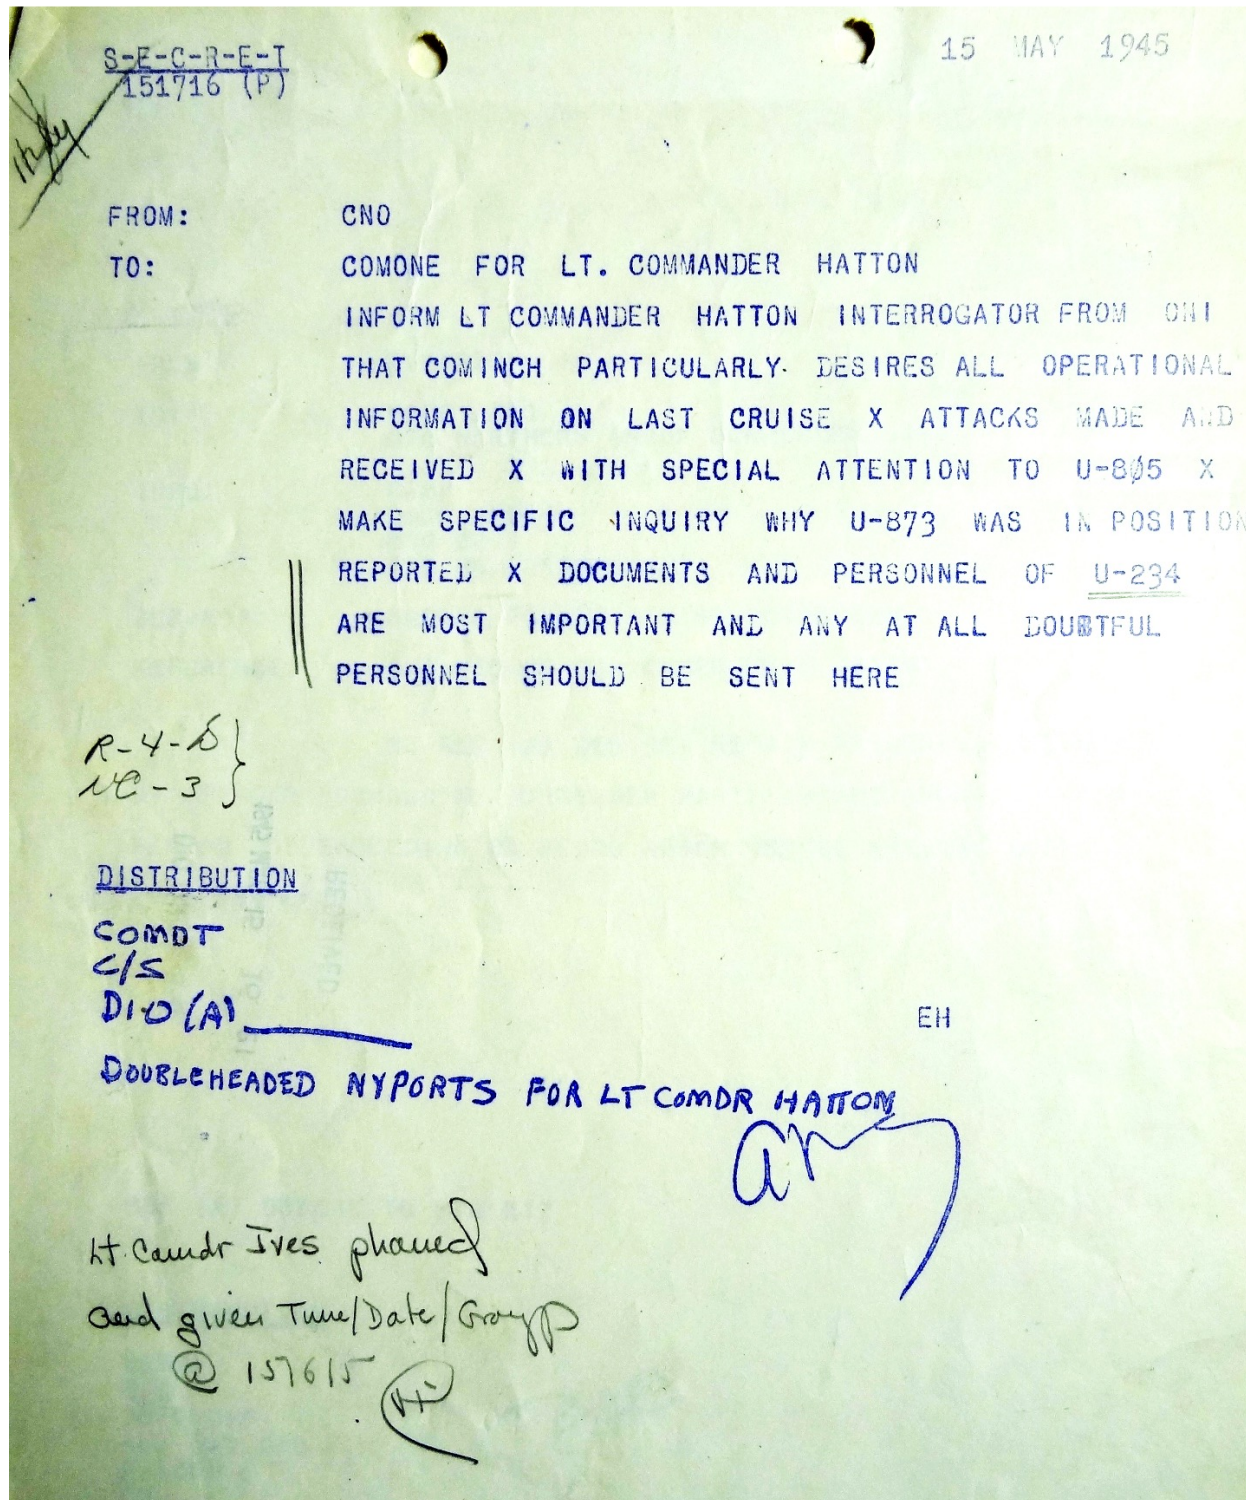 S-E-C-R-E-T
15 MAY 1945
151716 (P)
FROM: CNO
TO: COMONE FOR LT. COMMANDER HATTON
INFORM LT COMMANDER HATTON INTERROGATOR FROM ONI
THAT COMINCH PARTICULARLY DESIRES ALL OPERATIONAL
INFORMATION ON LAST CRUISE X ATTACKS MADE AND
RECEIVED X WITH SPECIAL ATTENTION TO U-8Ø5 X
MAKE SPECIFIC INQUIRY WHY U-873 WAS IN POSITION
REPORTED X DOCUMENTS AND PERSONNEL OF U-234
ARE MOST IMPORTANT AND ANY AT ALL DOUBTFUL
PERSONNEL SHOULD BE SENT HERE
R-4-S
NC-3
DISTRIBUTION
COMDT
C/S
DIO (A)
EH
DOUBLEHEADED NYPORTS FOR LT COMDR HATTON
Lt. Comdr Ives phoned
and given Time/Date/Group
@ 151615
RECEIVED